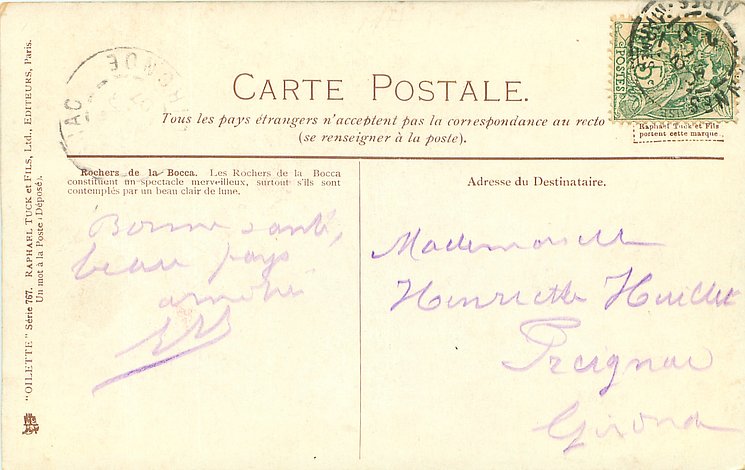 CARTE POSTALE.
Tous les pays étrangers n'acceptent pas la correspondance au recto
(se renseigner à la poste).
POSTES
5
Raphael Tuck et Fils
portent cette marque
Rochers de la Bocca. Les Rochers de la Bocca
constituent un spectacle merveilleux, surtout s'ils sont
contemplés par un beau clair de lune.
Bonne santé,
beau pays
Adresse du Destinataire.
Mademoiselle
Henriette Huillet
Preignac
Gironde
"OILETTE" Série 767. RAPHAEL TUCK et FILS, Ltd., EDITEURS, Paris.
Un mot à la Poste (Déposé).
GIRONDE